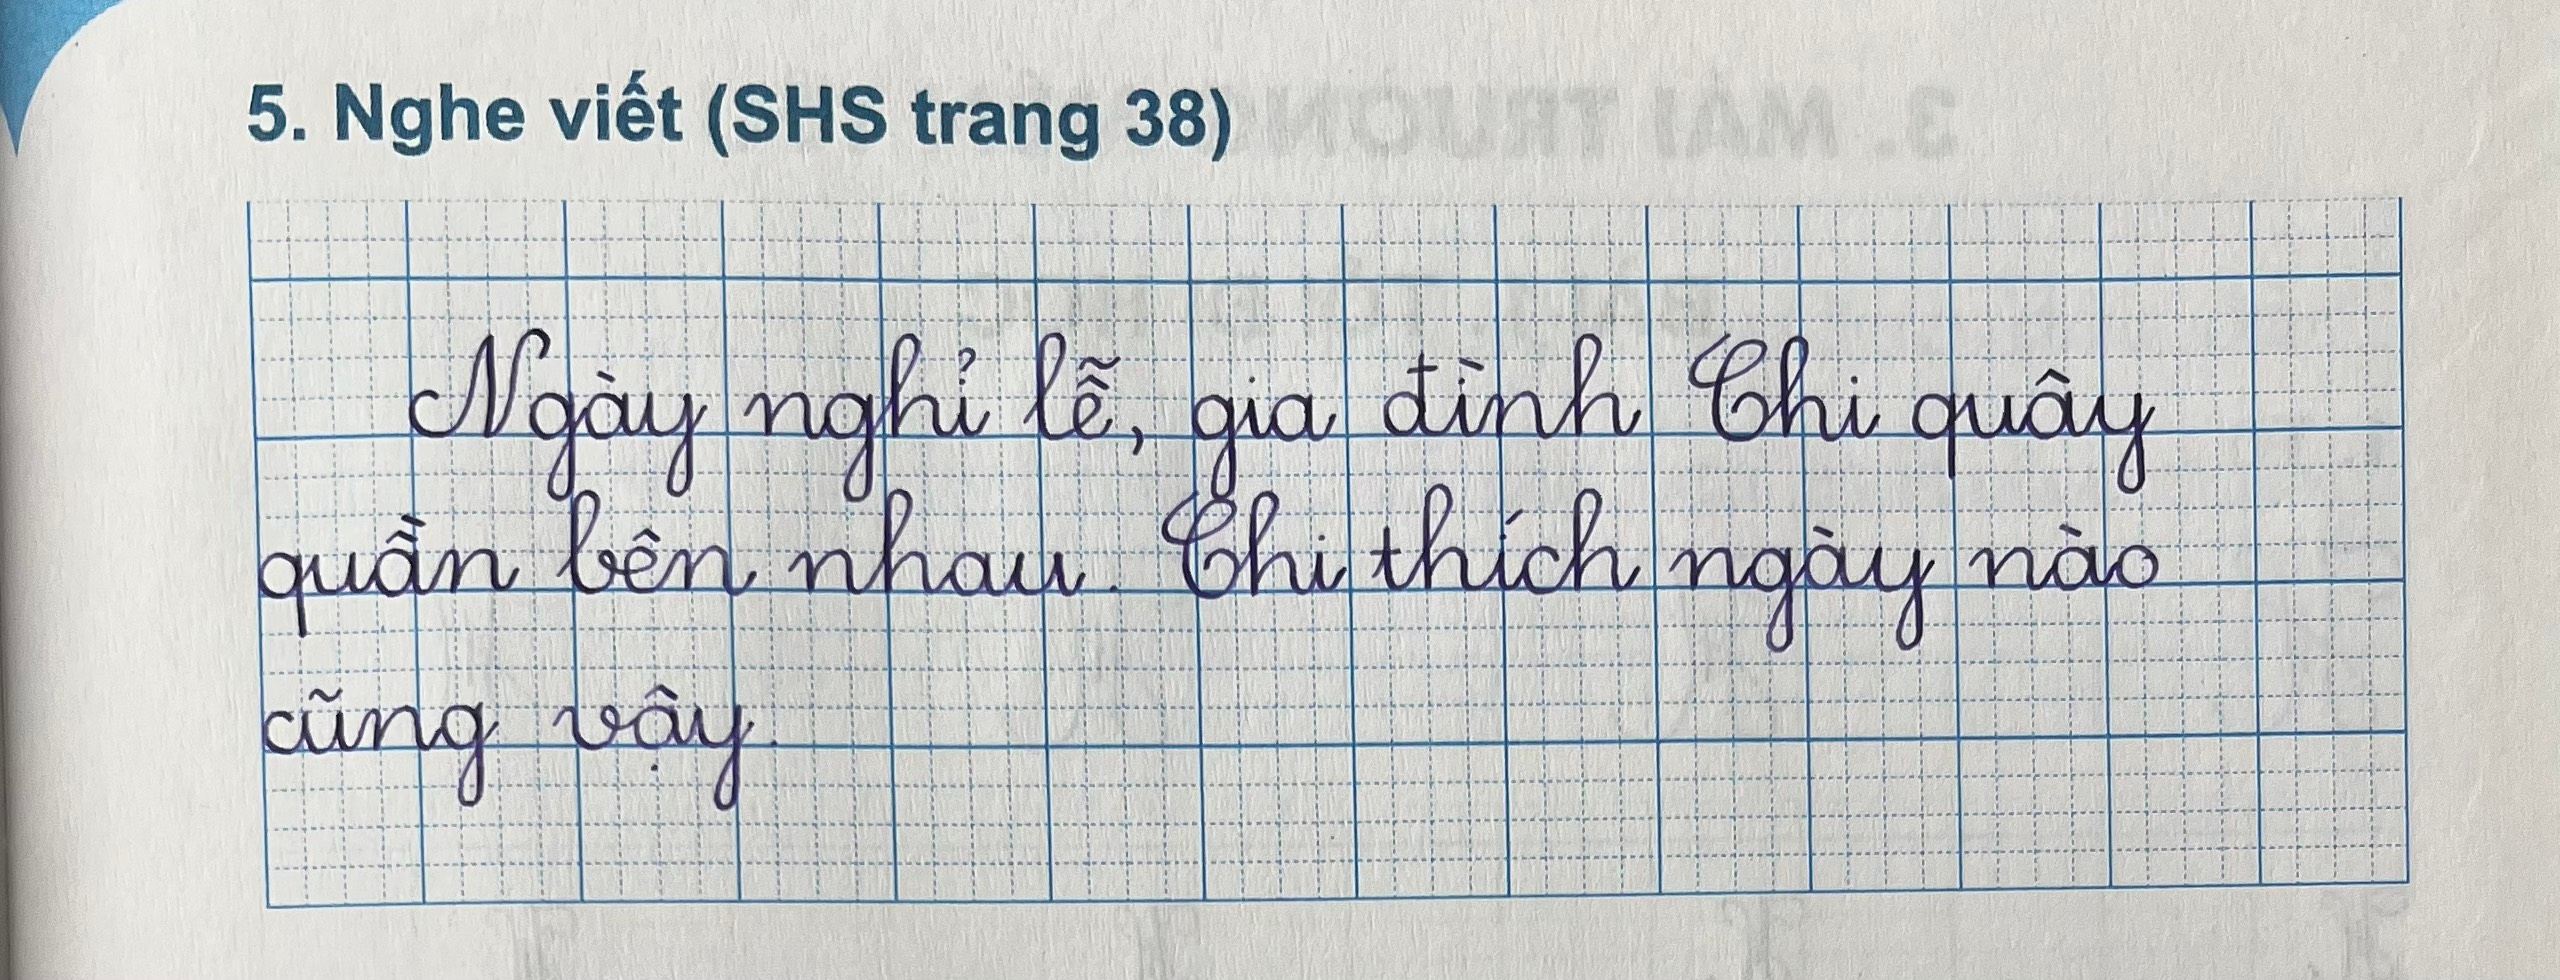 5. Nghe viết (SHS trang 38)
Ngày nghỉ lễ, gia đình Chi quây
quần bên nhau. Chi thích ngày nào
cũng vậy.